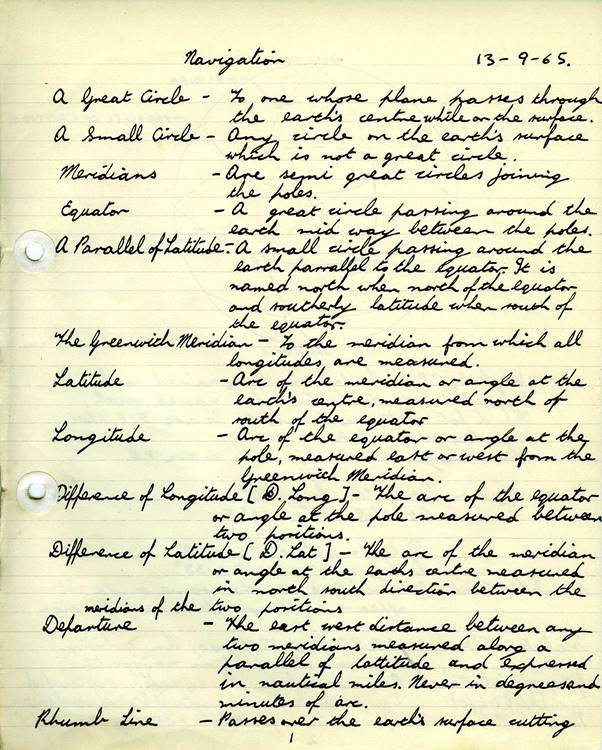 Navigation 13-9-65.
A Great Circle - Is one whose plane passes through
the earth's centre while on the surface.
A Small Circle - Any circle on the earth's surface
which is not a great circle.
Meridians - Are semi great circles joining
the poles.
Equator - A great circle passing around the
earth mid way between the poles.
A Parallel of Latitude - A small circle passing around the
earth parralel to the Equator. It is
named north when north of the equator
and southerly latitude when south of
the equator.
The Greenwich Meridian - Is the meridian from which all
longitudes are measured.
Latitude - Arc of the meridian or angle at the
earth's centre, measured north or
south of the equator
Longitude - Arc of the equator or angle at the
pole, measured east or west from the
Greenwich Meridian.
Difference of Longitude [D. Long] - The arc of the equator
or angle at the pole measured between
two positions.
Difference of Latitude [D. Lat] - The arc of the meridian
or angle at the earths centre measured
in north south direction between the
meridians of the two positions
Departure - The east west distance between any
two meridians measured along a
parallel of lattitude and expressed
in nautical miles. Never in degrees and
minutes of arc.
Rhumb Line - Passes over the earth's surface cutting
1